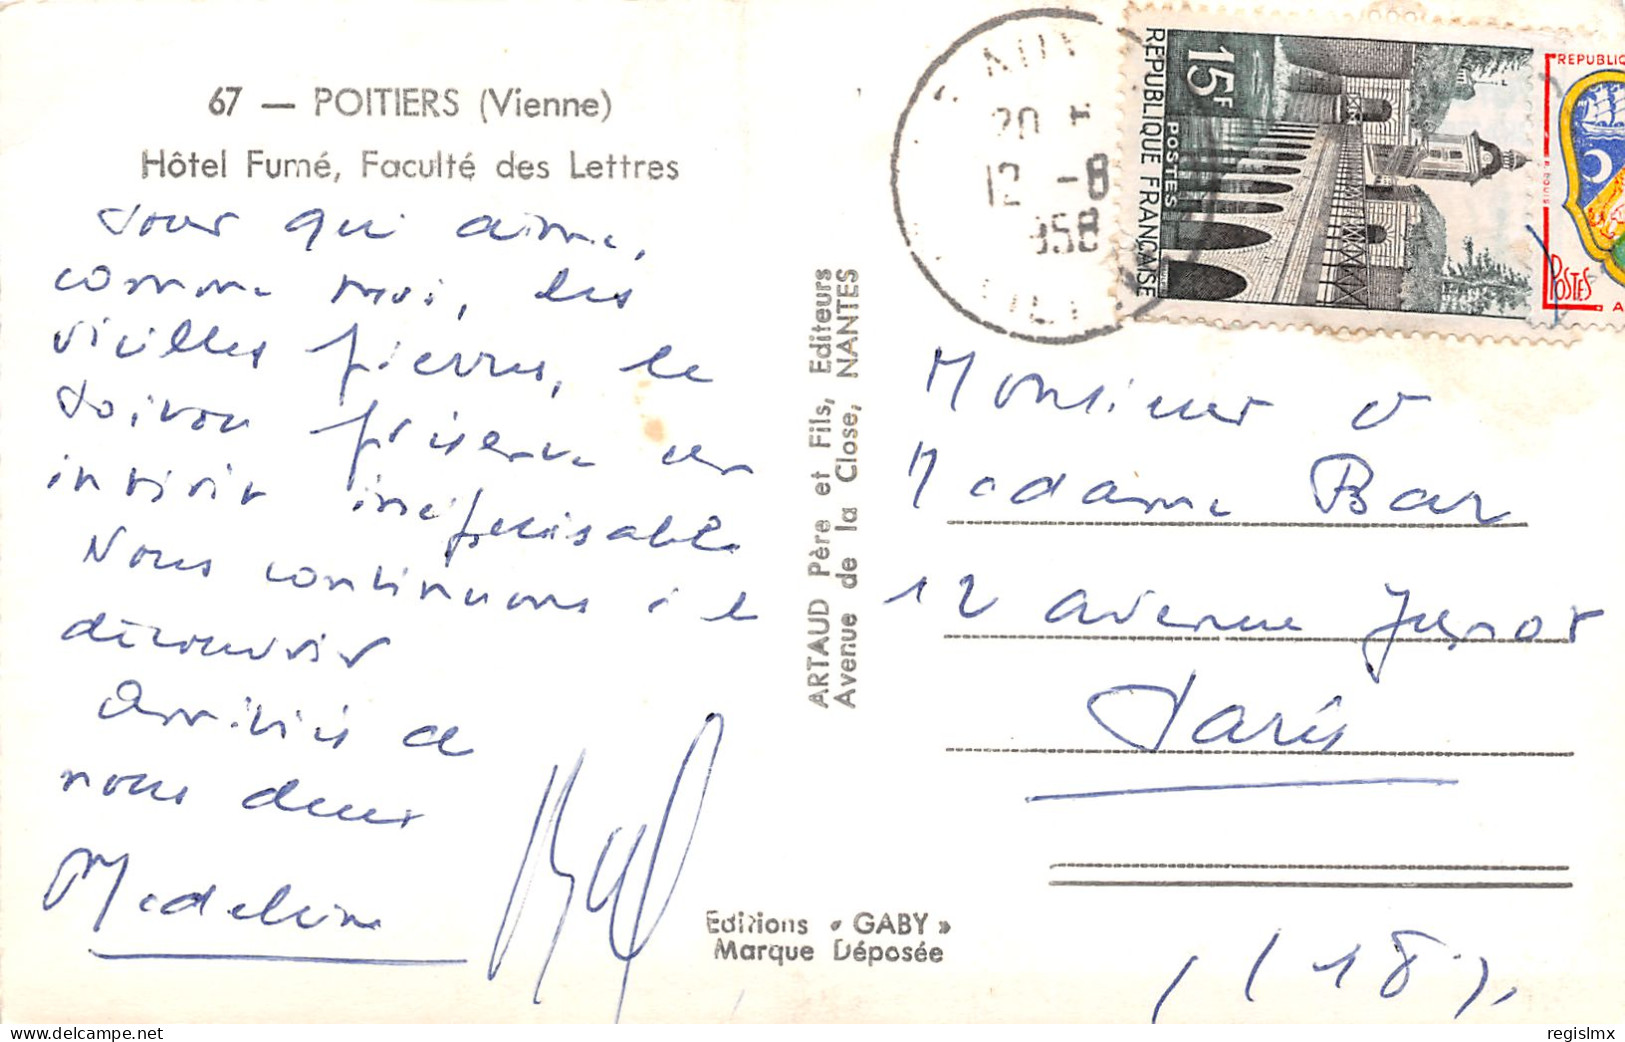 67 — POITIERS (Vienne)
Hôtel Fumé, Faculté des Lettres
Pour qui aime,
comme moi, les
vieilles pierres, le
Poitou préserve un
intérêt inépuisable
Nous continuons à le
découvrir
Amitiés de
nous deux
Madeleine
ARTAUD Père et Fils, Editeurs
Avenue de la Close, NANTES
Editions « GABY »
Marque Déposée
20
12 -8
958
REPUBLIQUE FRANÇAISE
POSTES
15F
REPUBLIQ
POSTES
Monsieur et
Madame Bar
12 avenue Junot
Paris
(18)
regislmx